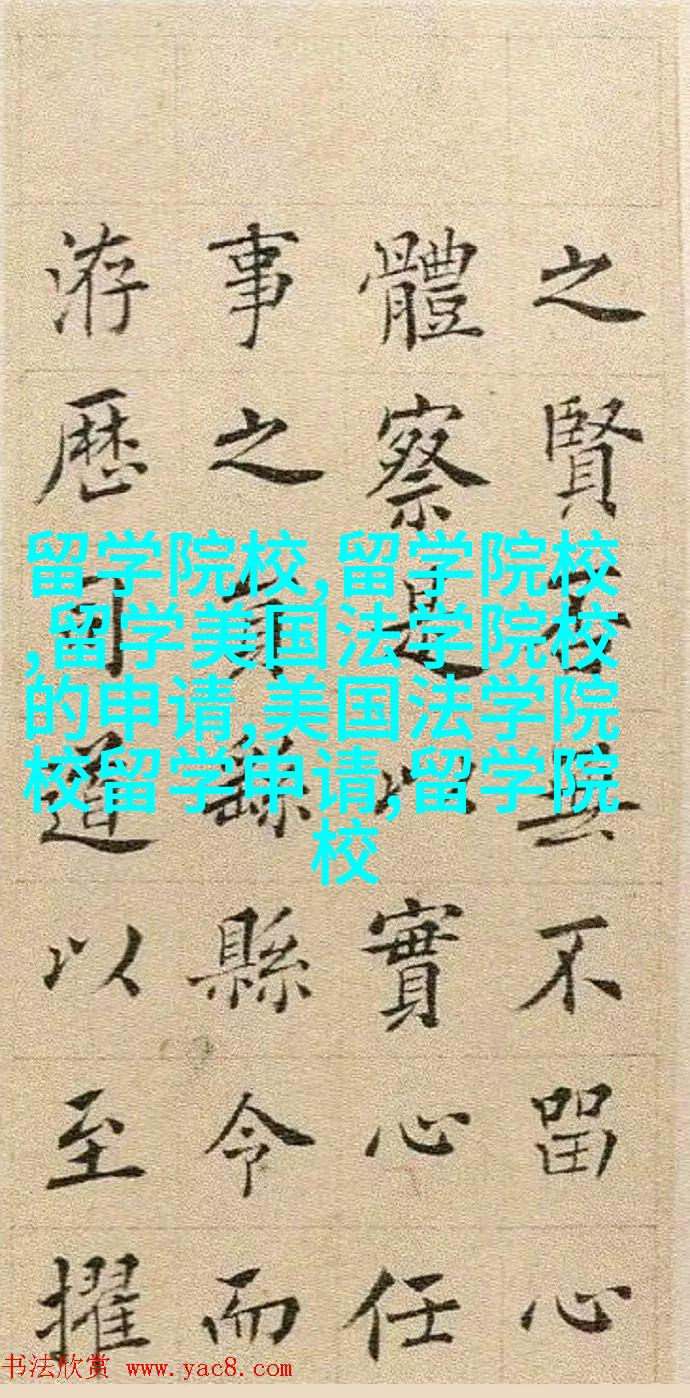 之賢不畱心
體察是以實心任
事之員繇縣令而
洊歷司道以至擢
留学院校,留学院校
,留学美国法学院校
的申请,美国法学院
校留学申请,留学院
校
书法欣赏 www.yac8.com